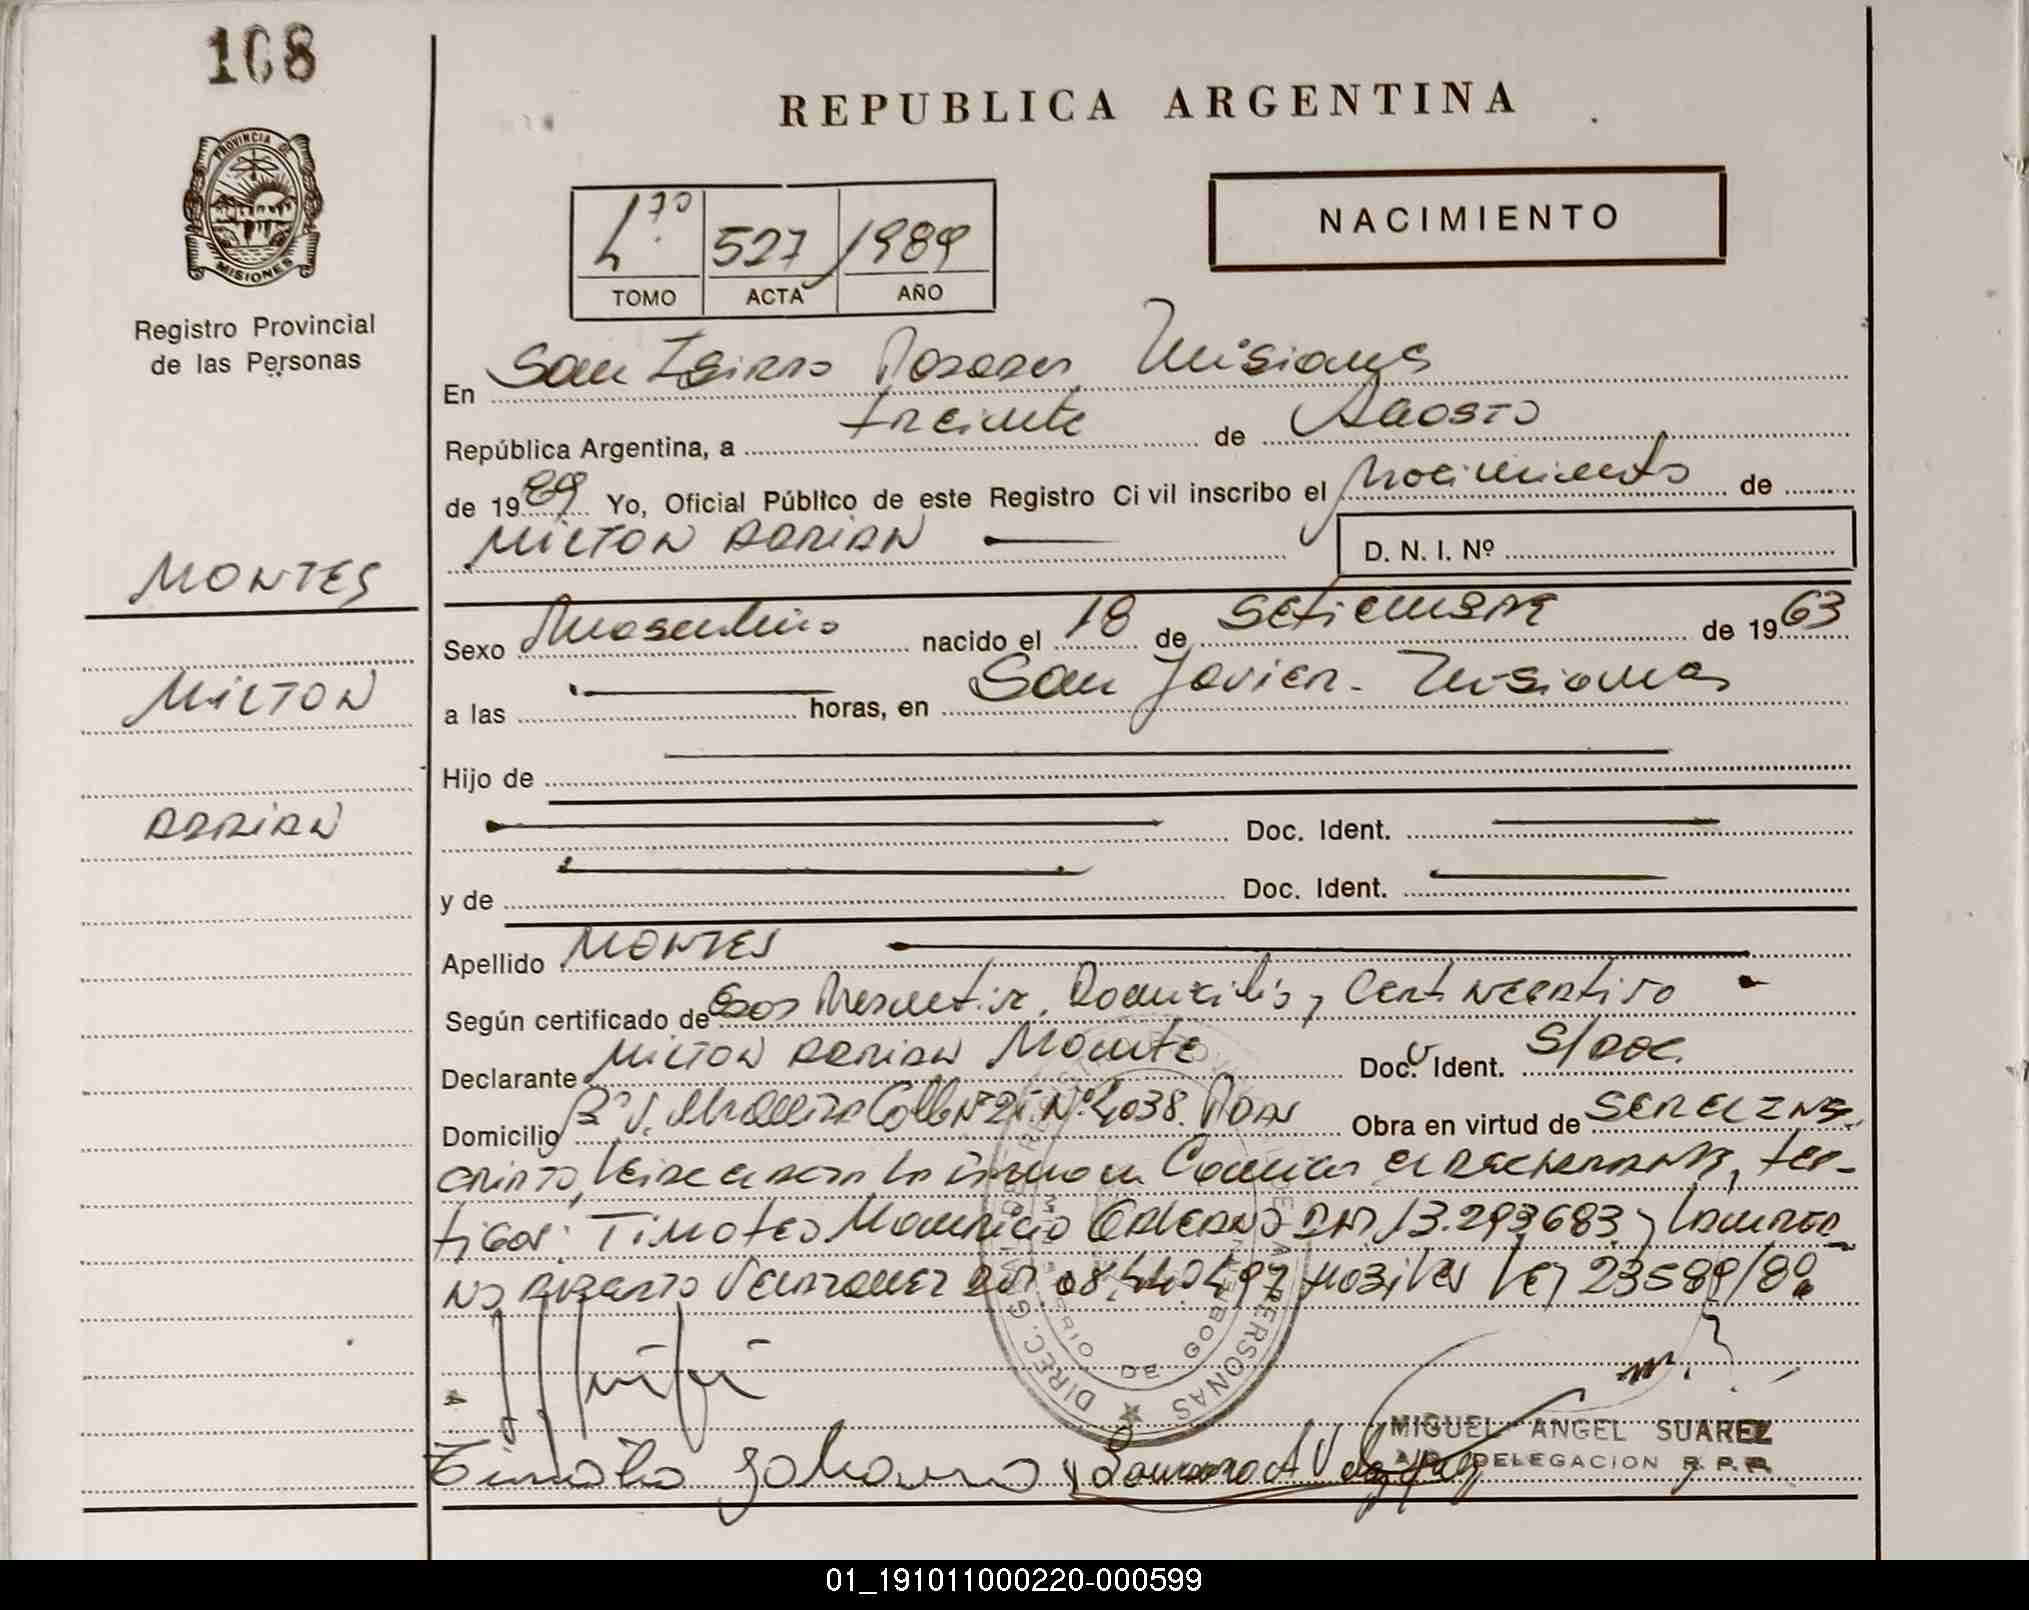 108
REPUBLICA ARGENTINA
PROVINCIA DE
MISIONES
Registro Provincial
de las Personas
NACIMIENTO
527 1989
TOMO ACTA AÑO
En San Isidro Posadas Misiones
República Argentina, a treinta de Agosto
de 1989 Yo, Oficial Público de este Registro Civil inscribo el Nacimiento de
MILTON ADRIAN
D. N. I. Nº
MONTES
MILTON
ADRIAN
Sexo Masculino nacido el 18 de SETIEMBRE de 1963
a las horas, en San Javier - Misiones
Hijo de
Doc. Ident.
y de Doc. Ident.
Apellido MONTES
Según certificado de Domicilio, y Cert NEGATIVO
Declarante MILTON ADRIAN Montes Doc. Ident. S/DOC.
Domicilio Nº 4038. Obra en virtud de SERE INS-
CRIPTO, Leida el acta la firman Conmigo el DECLARANTE, tes-
tigos: TIMOTEO Mauricio GALEANO DNI 13.293683 y
ALBERTO VELAZQUEZ DNI 08.440497 Ley 23589/89
MIGUEL ANGEL SUAREZ
DELEGACION R.P.P.
Timoteo Galeano
01_191011000220-000599